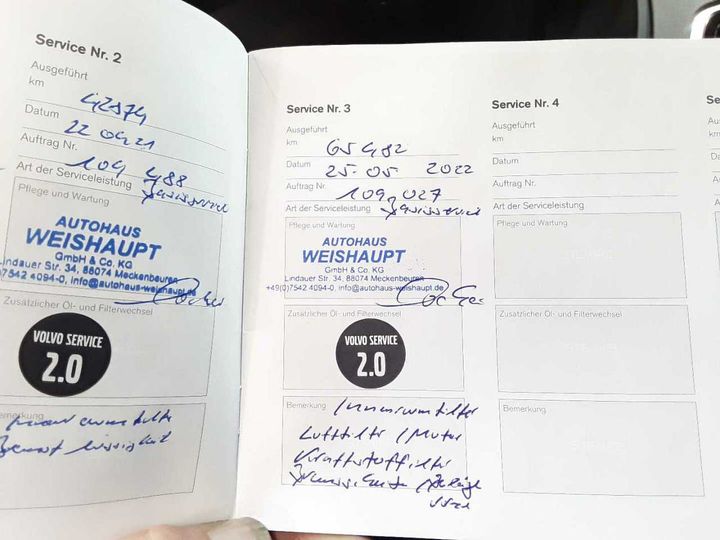 Service Nr. 2
Ausgeführt
km 42874
Datum 22 04 21
Auftrag Nr.
109 488
Art der Serviceleistung
Pflege und Wartung
AUTOHAUS
WEISHAUPT
GmbH & Co. KG
Lindauer Str. 34, 88074 Meckenbeuren
0)7542 4094-0, info@autohaus-weishaupt.de
Zusätzlicher Öl- und Filterwechsel
VOLVO SERVICE
2.0
Service Nr. 3
Ausgeführt
km 65482
Datum 25-05 2022
Auftrag Nr. 109 027
Art der Serviceleistung
Pflege und Wartung
AUTOHAUS
WEISHAUPT
GmbH & Co. KG
Lindauer Str. 34, 88074 Meckenbeuren
+49(0)7542 4094-0, info@autohaus-weishaupt.de
Zusätzlicher Öl- und Filterwechsel
VOLVO SERVICE
2.0
Bemerkung Innenraumfilter
Luftfilter / Motor
Kraftstofffilter
Service Nr. 4
Ausgeführt
km
Datum
Auftrag Nr.
Art der Serviceleistung
Pflege und Wartung
Zusätzlicher Öl- und Filterwechsel
Bemerkung